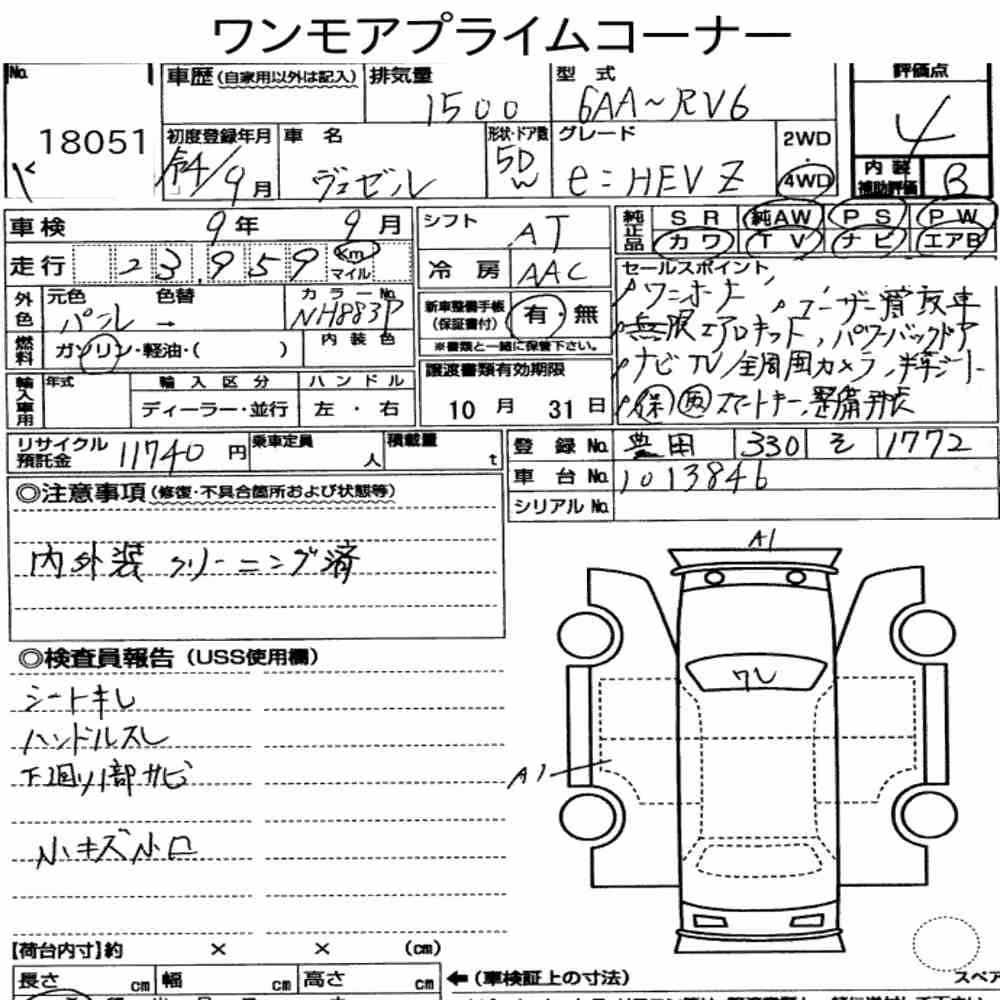 ワンモアプライムコーナー
No. 18051
車歴(自家用以外は記入) 排気量 1500 型 式 6AA~RV6 評価点 4
初度登録年月 令4/9月 車 名 ヴェゼル 形状・ドア数 5D W グレード e:HEV Z 2WD・4WD 内 装 補助評価 B
車検 9年 9月 シフト AT 純正品 SR 純AW PS PW
走行 23,959 Km マイル 冷 房 AAC カワ TV ナビ エアB
外色 元色 パール 色替 → カラーNo. NH883P 新車整備手帳(保証書付) 有・無 セールスポイント
※書類と一緒に保管下さい。
燃料 ガソリン・軽油・( ) 内 装 色
ワンオーナー ユーザー買取車
無限エアロキット、パワーバックドア
ナビTV/全周囲カメラ、半革シート
保 取 スマートキー、整備点
輸入車用 年式 輸 入 区 分 ハ ン ド ル 譲渡書類有効期限
ディーラー・並行 左 ・ 右 10 月 31 日
リサイクル預託金 11740 円 乗車定員 人 積載量 t
登 録 No. 豊田 330 そ 1772
車 台 No. 1013846
シリアル No.
◎注意事項(修復・不具合箇所および状態等)
内外装クリーニング済
◎検査員報告(USS使用欄)
シートキレ
ハンドルスレ
下廻り1部サビ
小キズ小凹
A1
ワレ
A1
【荷台内寸】約 × × (cm)
長さ cm 幅 cm 高さ cm ←(車検証上の寸法)
スペア